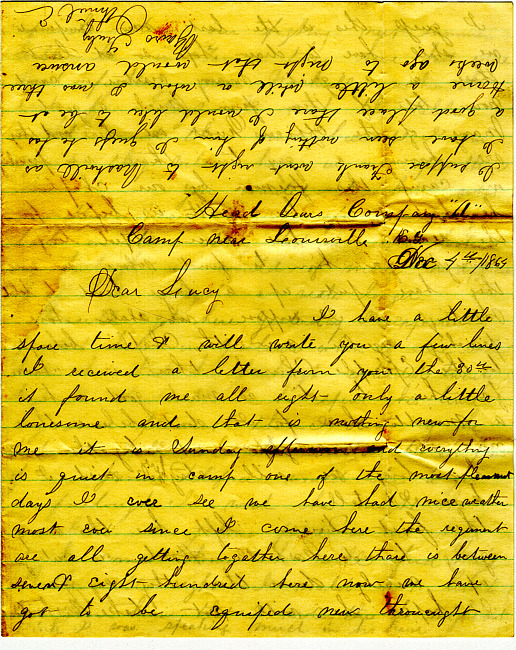 Head Quars Company "A"
Camp near Louisville
Dec 4th 1864
Dear Lucy
I have a little
spare time & will write you a few lines
I received a letter from you the 30th
it found me all right only a little
lonesome and that is nothing new for
me it is Sunday afternoon and everything
is quiet in camp one of the most pleasant
days I ever see we have had nice weather
most ever since I come here the regiment
are all getting together here thare is between
seven & eight hundred here now we have
got to be equiped new throught
I suppose Frank went right to Nashville as
I have seen nothing of him I guess he has
a good place thare I would like to be at
Home a little while or where I was three
weeks ago to night that would answer
Yours Truly